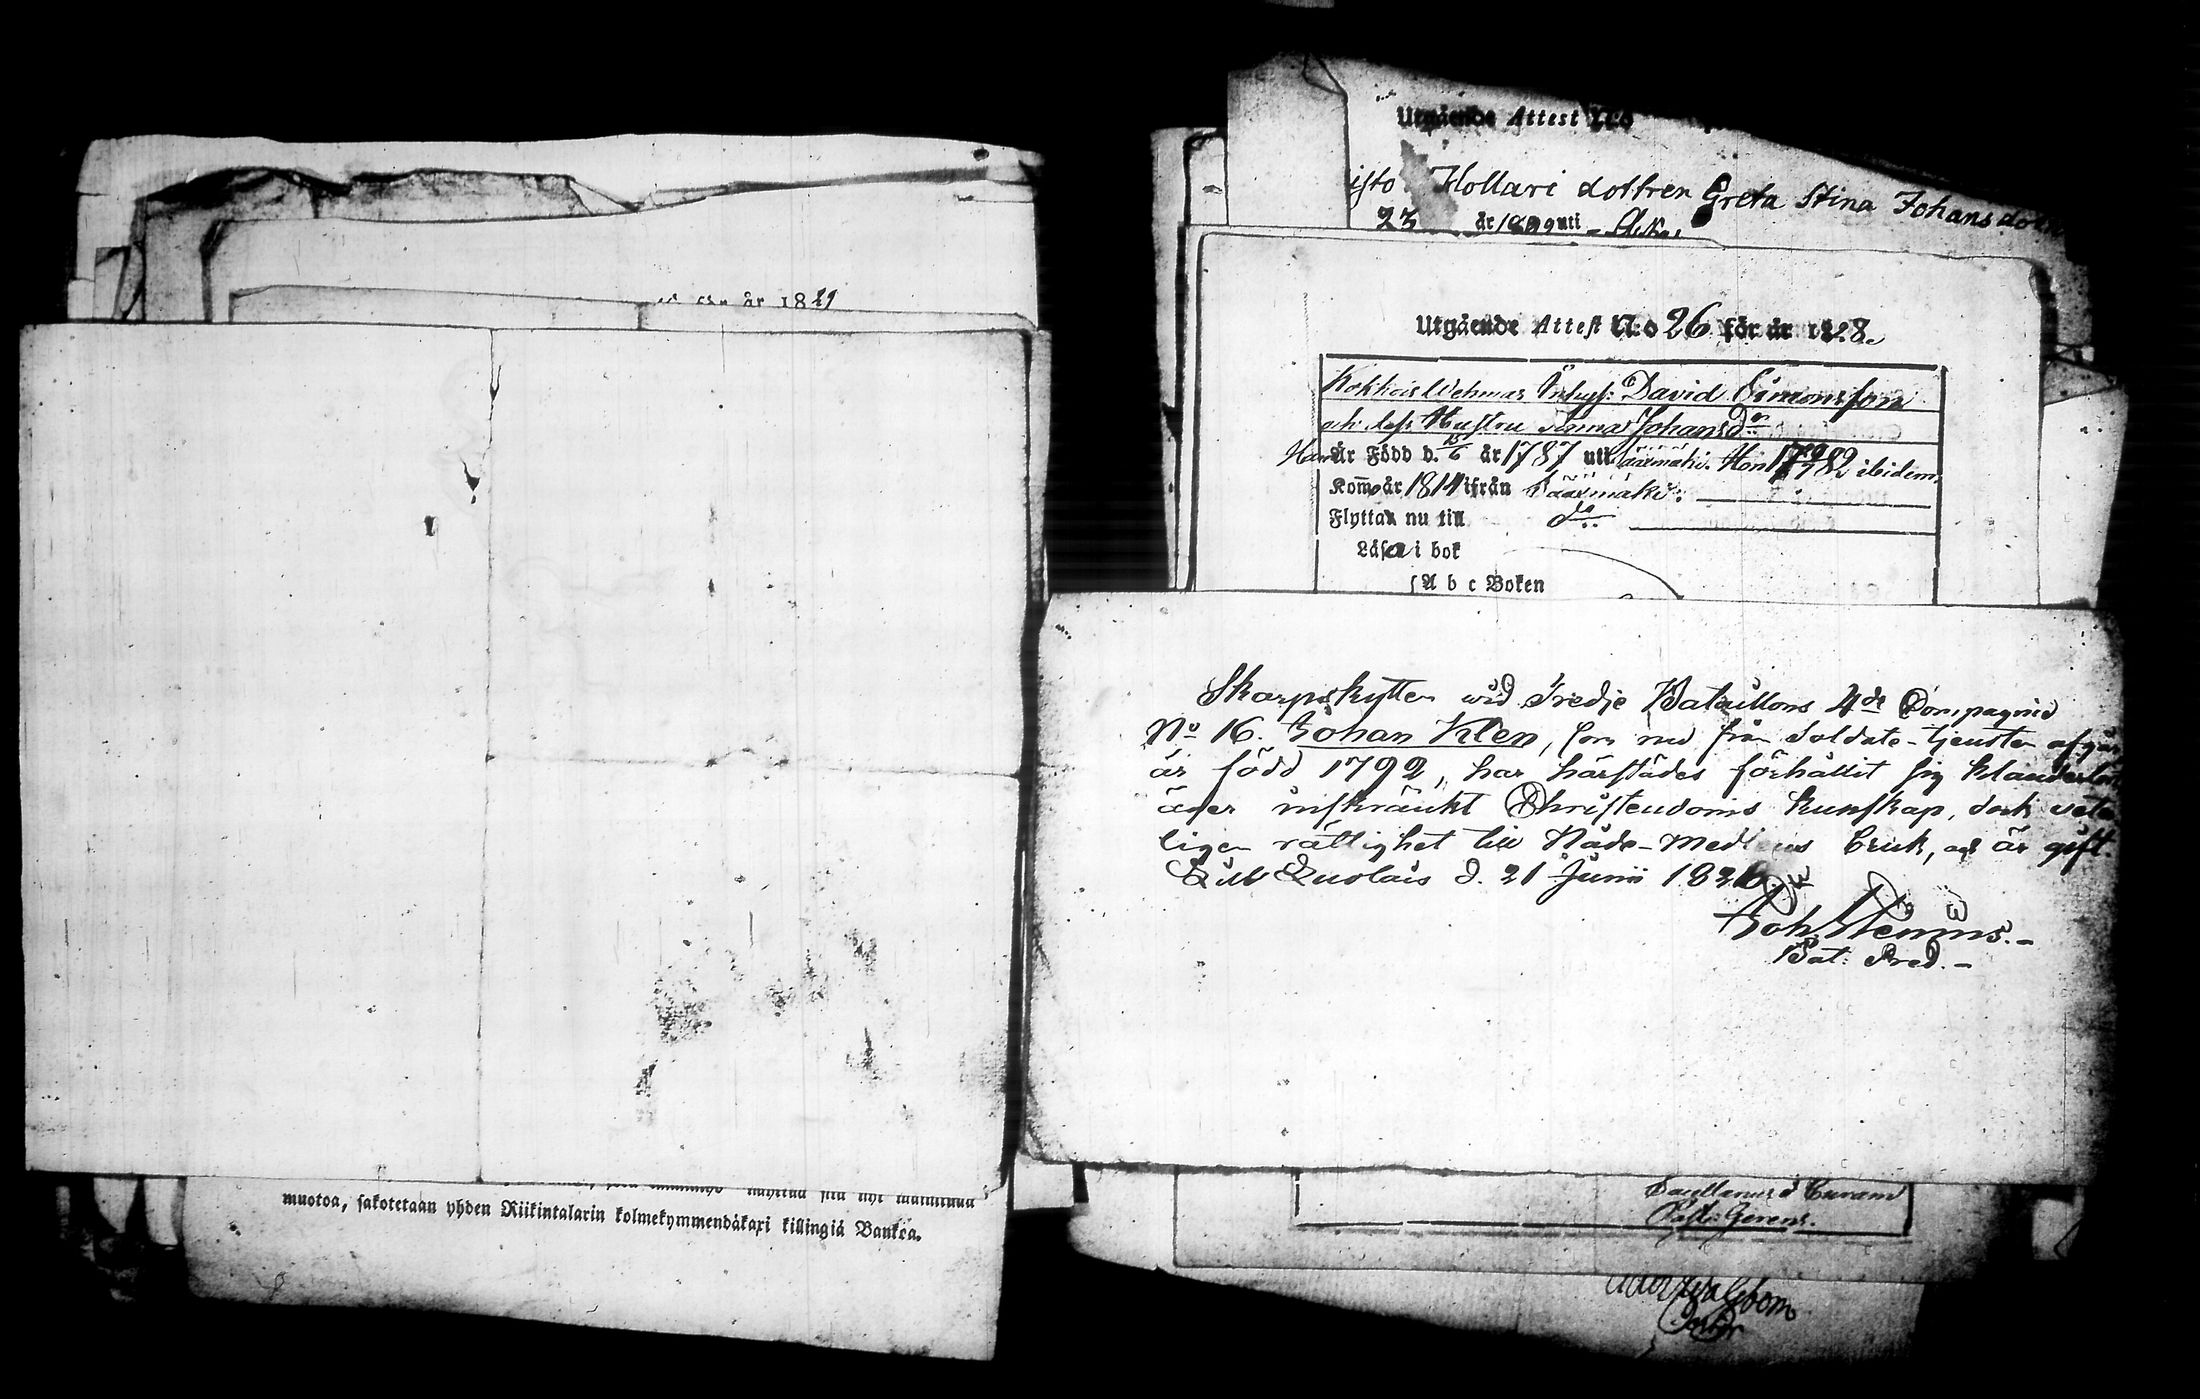 år 1829
muotoa, sakotetaan yhden Riikintalarin kolmekymmendäkaxi killingiä Bankoa.
Utgående Attest N:o
Hollari dottren Greta Stina Johansdotter
23 år 1809 uti
Utgående Attest N:o 26 för år 1828.
Kokkois Wehmas David Simonsson
och dess Hustru Anna Johansd:r
Han Är Född d. 15/6 år 1787 uti Säärmäki. Hon 1782 ibidem.
Kom år 1814 ifrån Säärmäki.
Flyttar nu till do.
Läser i bok
A b c Boken
Skarpskytten wid Tredje Bataillons 4de Compagnie
No 16. Johan Klen, som nu från Soldate-tjensten afgår
är född 1792, har härstädes förhållit sig klanderlöst
äger inskränkt Christendoms kunskap, dock veter-
ligen rättighet till Nåde-Medlens bruk, och är gift.
d. 21 Junii 1826.
Joh.
Bat. Pred.
Sacellanus & Curam
Past: Gerens.